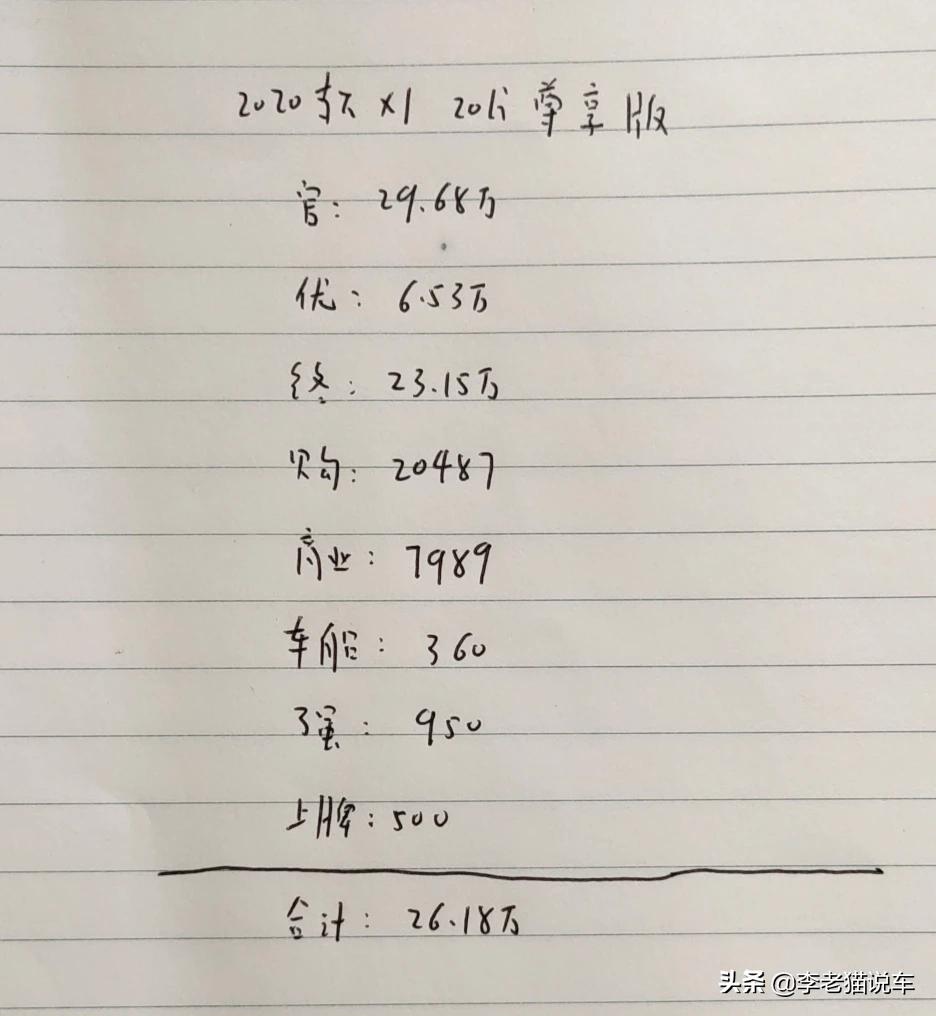 2020款 X1 20Li 尊享版
官: 29.68万
优: 6.53万
终: 23.15万
购: 20487
商业: 7989
车船: 360
强: 950
上牌: 500
合计: 26.18万
头条 @李老猫说车